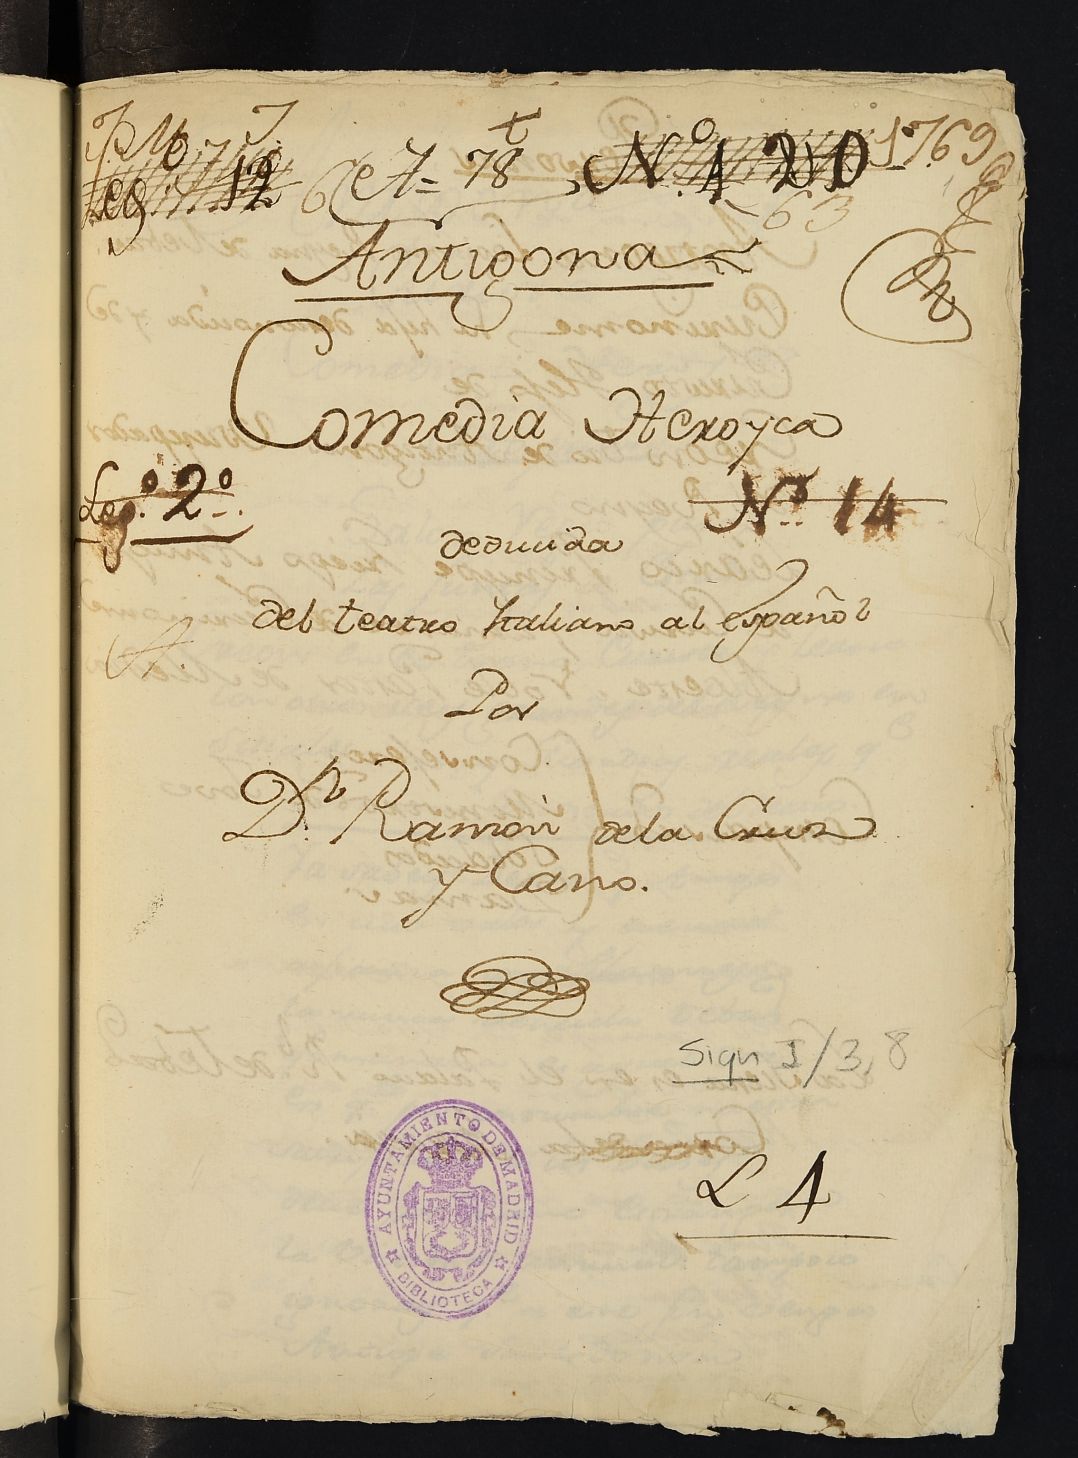 Leg.º 12
Nº 1
1769
Antigona
Comedia Heroyca
Leg.º 2º
Nº 14
deducida
del teatro Italiano al español
Por
Dn. Ramón dela Cruz
y Cano.
Sign I/3, 8
L 1
AYUNTAMIENTO DE MADRID
BIBLIOTECA